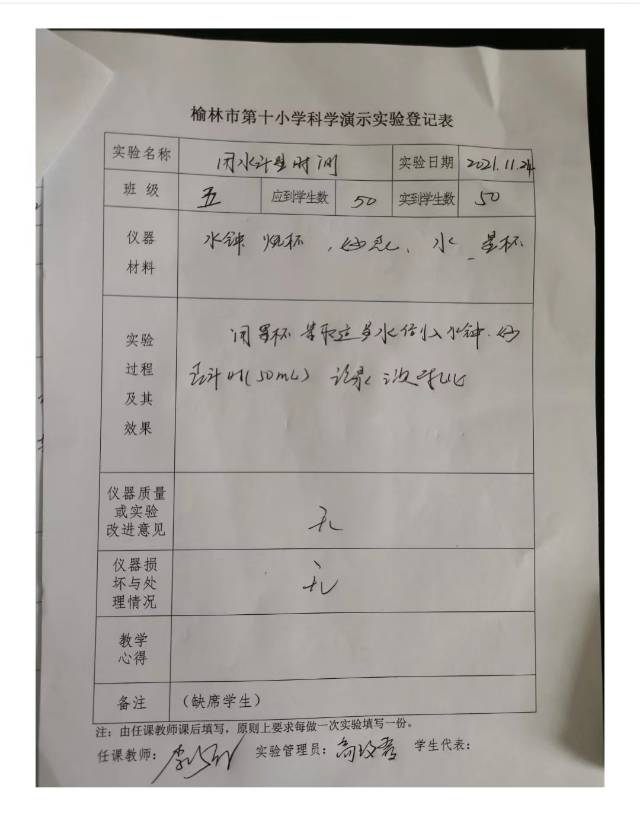 榆林市第十小学科学演示实验登记表
实验名称 用水计量时间 实验日期 2021.11.24
班 级 五 应到学生数 50 实到学生数 50
仪器
材料
水钟 烧杯 、水、量杯
实验
过程
及其
效果
用量杯 水 水钟
计时(50mL) 记录
仪器质量
或实验
改进意见
无
仪器损
坏与处
理情况
无
教学
心得
备注 (缺席学生)
注:由任课教师课后填写,原则上要求每做一次实验填写一份。
任课教师: 实验管理员: 学生代表: